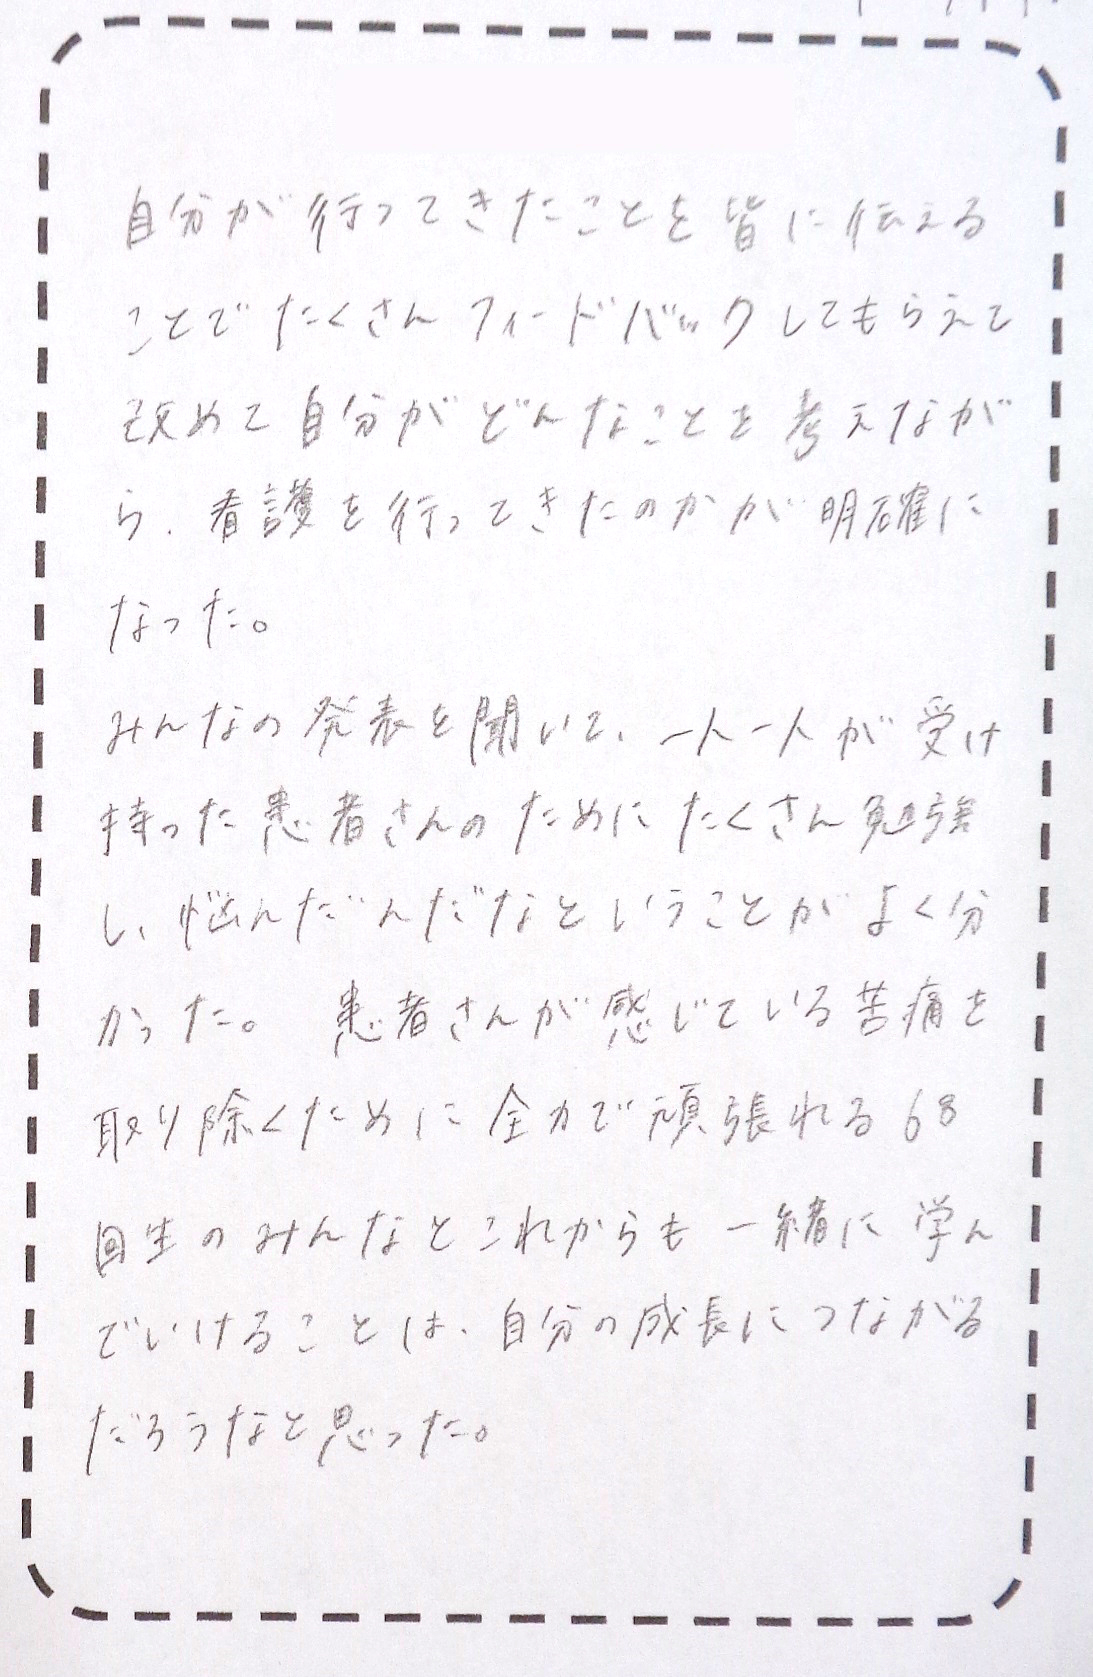 自分が行ってきたことを皆に伝える
ことでたくさんフィードバックしてもらえて
改めて自分がどんなことを考えなが
ら、看護を行ってきたのかが明確に
なった。
みんなの発表を聞いて、一人一人が受け
持った患者さんのためにたくさん勉強
し、悩んだんだなということがよく分
かった。 患者さんが感じている苦痛を
取り除くために全力で頑張れる68
回生のみんなとこれからも一緒に学ん
でいけることは、自分の成長につながる
だろうなと思った。